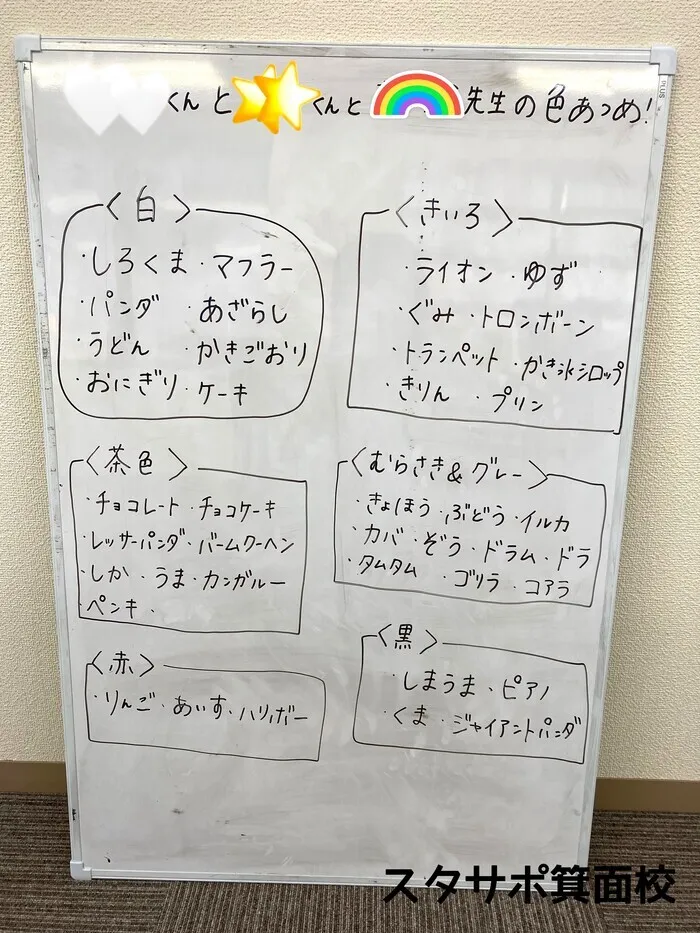 くんと くんと 先生の色あつめ!
<白>
・しろくま ・マフラー
・パンダ ・あざらし
・うどん ・かきごおり
・おにぎり ・ケーキ
<きいろ>
・ライオン ・ゆず
・ぐみ ・トロンボーン
・トランペット ・かき氷シロップ
・きりん ・プリン
<茶色>
・チョコレート ・チョコケーキ
・レッサーパンダ ・バームクーヘン
・しか ・うま ・カンガルー
・ペンキ ・
<むらさき&グレー>
・きょほう ・ぶどう ・イルカ
・カバ ・ぞう ・ドラム ・ドラ
・タムタム ・ゴリラ ・コアラ
<赤>
・りんご ・あいす ・ハリボー
<黒>
・しまうま ・ピアノ
・くま ・ジャイアントパンダ
PLUS
スタサポ箕面校